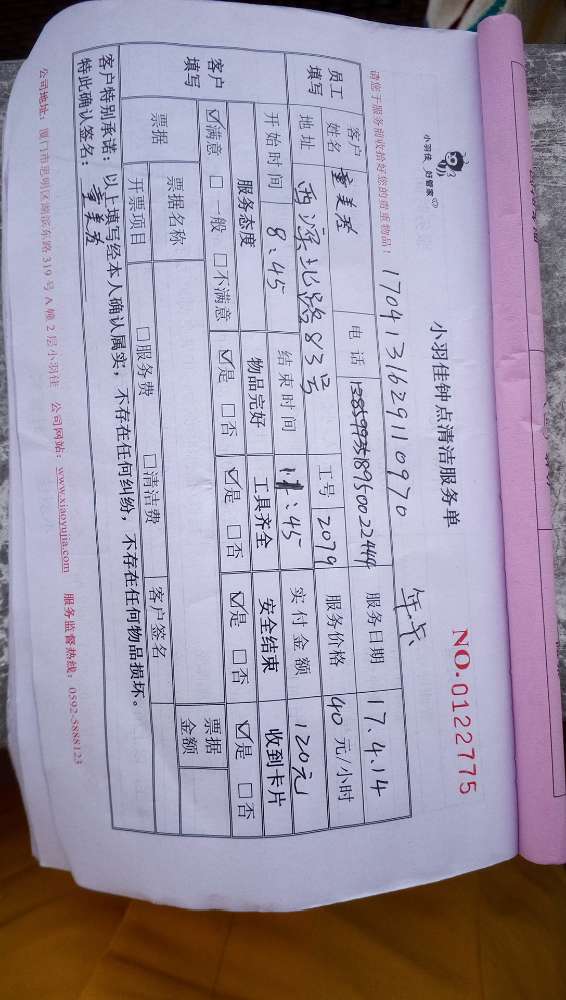 小羽佳 好管家
小羽佳钟点清洁服务单
NO.0122775
请您于服务前收拾好您的贵重物品！
1704131629110970
年卡
员工填写 客户姓名 童美芳 电话 18950022449 服务日期 17.4.14
地址 西深北路83号 工号 2079 服务价格 40元/小时
开始时间 8:45 结束时间 11:45 实付金额 120元
客户填写 服务态度 物品完好 工具齐全 安全结束 收到卡片
☑满意 □一般 □不满意 ☑是 □否 ☑是 □否 ☑是 □否 ☑是 □否
票据 票据名称 票据金额
开票项目 □服务费 □清洁费 客户签名
客户特别承诺：以上填写经本人确认属实，不存在任何纠纷，不存在任何物品损坏。
特此确认签名：童美芳
公司地址：厦门市思明区湖滨东路319号A幢2层小羽佳 公司网站：www.xiaoyujia.com 服务监督热线：0592-5888123